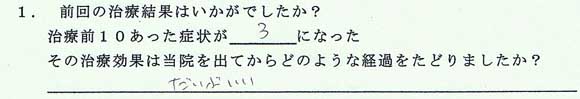 １．　前回の治療結果はいかがでしたか？
治療前１０あった症状が　3　になった
その治療効果は当院を出てからどのような経過をたどりましたか？
だいぶいい